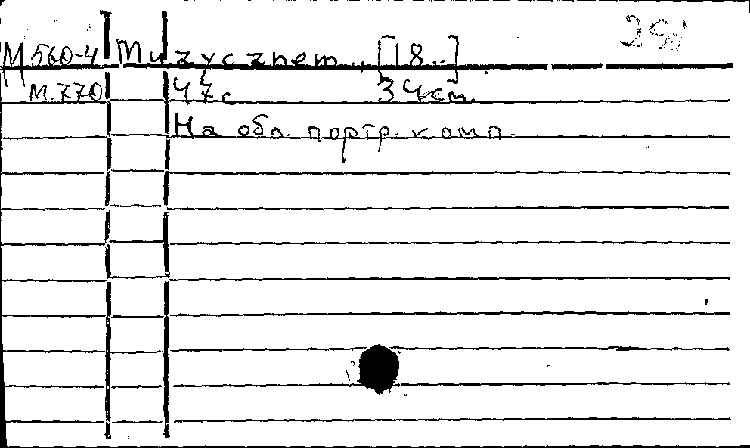 М 560-4 Muzycznem.. [18..]
м.770 47 с 34 см.
На обл. портр. комп.